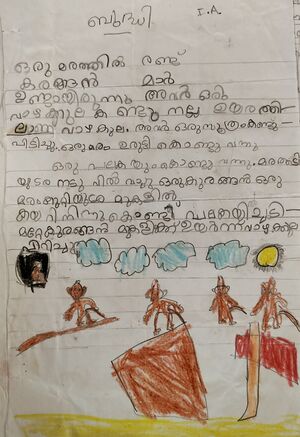 ബുദ്ധി
I.A
ഒരു മരത്തിൽ രണ്ട്
കുരങ്ങൻ മാർ
ഉണ്ടായിരുന്നു അവർ ഒരു
വാഴക്കുല കണ്ടു നല്ല ഉയരത്തി
ലാണ് വാഴകുല. അവർ ഒരു സൂത്രം കണ്ടു
പിടിച്ചു. ഒരു മരം ഉരുട്ടി കൊണ്ടു വന്നു
ഒരു പലകയും കൊണ്ടു വന്നു. മരത്തടി
യുടെ നടുവിൽ വച്ചു ഒരു കുരങ്ങൻ ഒരു
മുകളിൽ
കയറി നിന്നു കൊണ്ട് ചാടി
മറ്റേകുരങ്ങൻ ഉയർന്ന് വാഴക്കുല